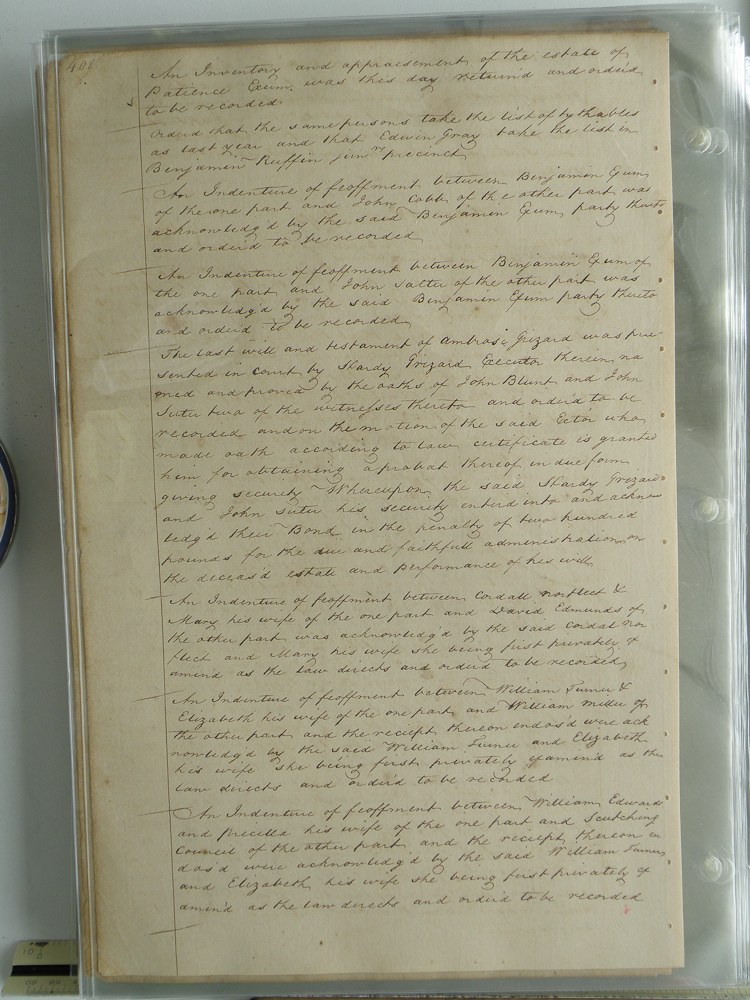 408
An Inventory and appraisement of the estate of
Patience Exum was this day returnd and orderd
to be recorded
Orderd that the same persons take the list of tythables
as last year and that Edwin Gray take the list in
Benjamin Ruffin junr precinct
An Indenture of feoffment between Benjamin Exum
of the one part and John Cobb of the other part was
acknowledg'd by the said Benjamin Exum party thereto
and order'd to be recorded
An Indenture of feoffment between Benjamin Exum of
the one part and John of the other part was
acknowledg'd by the said Benjamin Exum party thereto
and orderd to be recorded
The last will and testament of Ambrose Grizard was pre-
sented in court by Hardy Grizard Executor therein na
med and proved by the oaths of John Blunt and John
Suter two of the witnesses thereto and orderd to be
recorded and on the motion of the said Ector who
made oath according to law certificate is granted
him for obtaining a probat thereof in due form
giving security Whereupon the said Hardy Grizard
and John Suter his security enterd into and acknow
ledg'd their Bond in the penalty of two hundred
pounds for the due and faithfull administration on
the deceas'd estate and performance of his will
An Indenture of feoffment between Cordall Norfleet &
Mary his wife of the one part and David Edmunds of
the other part was acknowledg'd by the said Cordal Nor
fleet and Mary his wife she being first privately &
amind as the Law directs and orderd to be recorded
An Indenture of feoffment between William Turner &
Elizabeth his wife of the one part and William Miller of
the other part and the receipt thereon endos'd were ack
nowledg'd by the said William Turner and Elizabeth
his wife she being first privately examin'd as the
law directs and order'd to be recorded
An Indenture of feoffment between William Edwards
and Pricilla his wife of the one part and Scutching
Council of the other part and the reciept thereon en
dos'd were acknowledg'd by the said William Turner
and Elizabeth his wife she being first privately &
amin'd as the law directs and orderd to be recorded